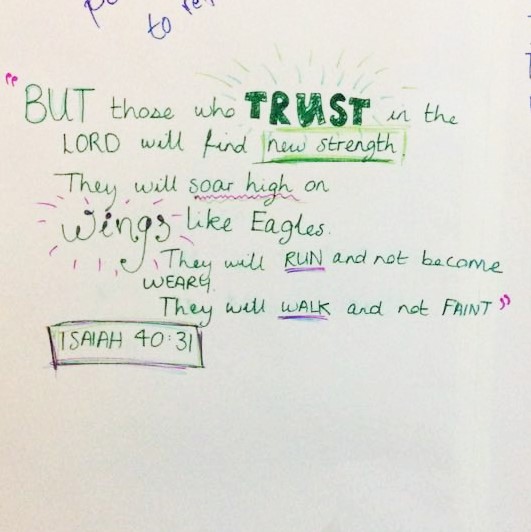 to
"BUT those who TRUST in the
LORD will find new strength
They will soar high on
Wings like Eagles.
They will RUN and not become
WEARY.
They will WALK and not FAINT"
ISAIAH 40:31